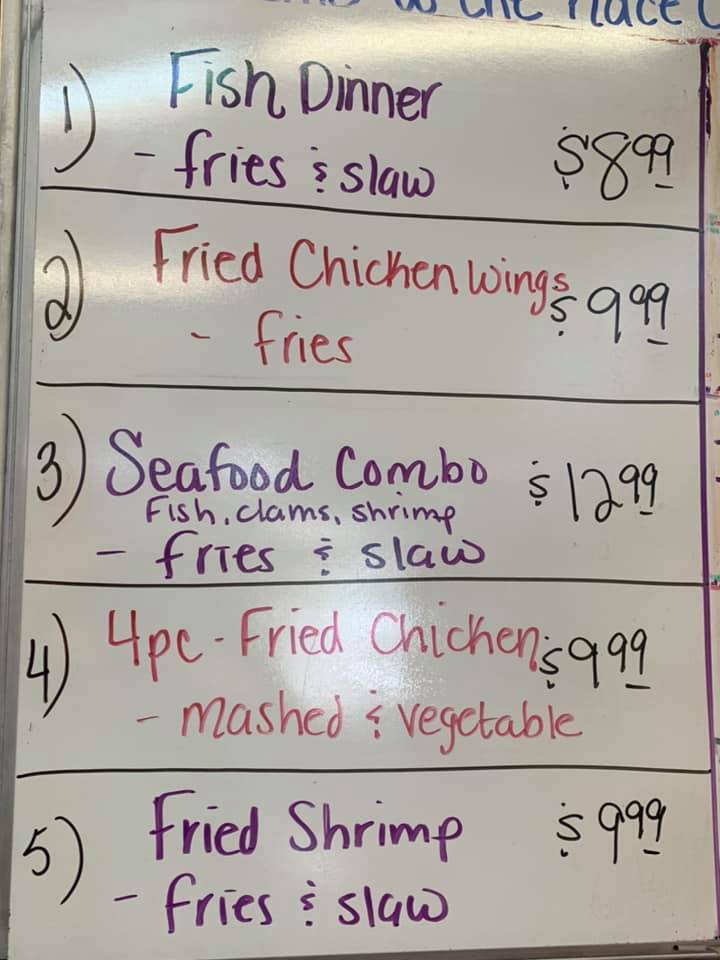 to the Place
1) Fish Dinner
- fries & slaw $8.99
2) Fried Chicken Wings $9.99
- fries
3) Seafood Combo $12.99
Fish, clams, shrimp
- fries & slaw
4) 4pc - Fried Chicken $9.99
- mashed & vegetable
5) Fried Shrimp $9.99
- fries & slaw